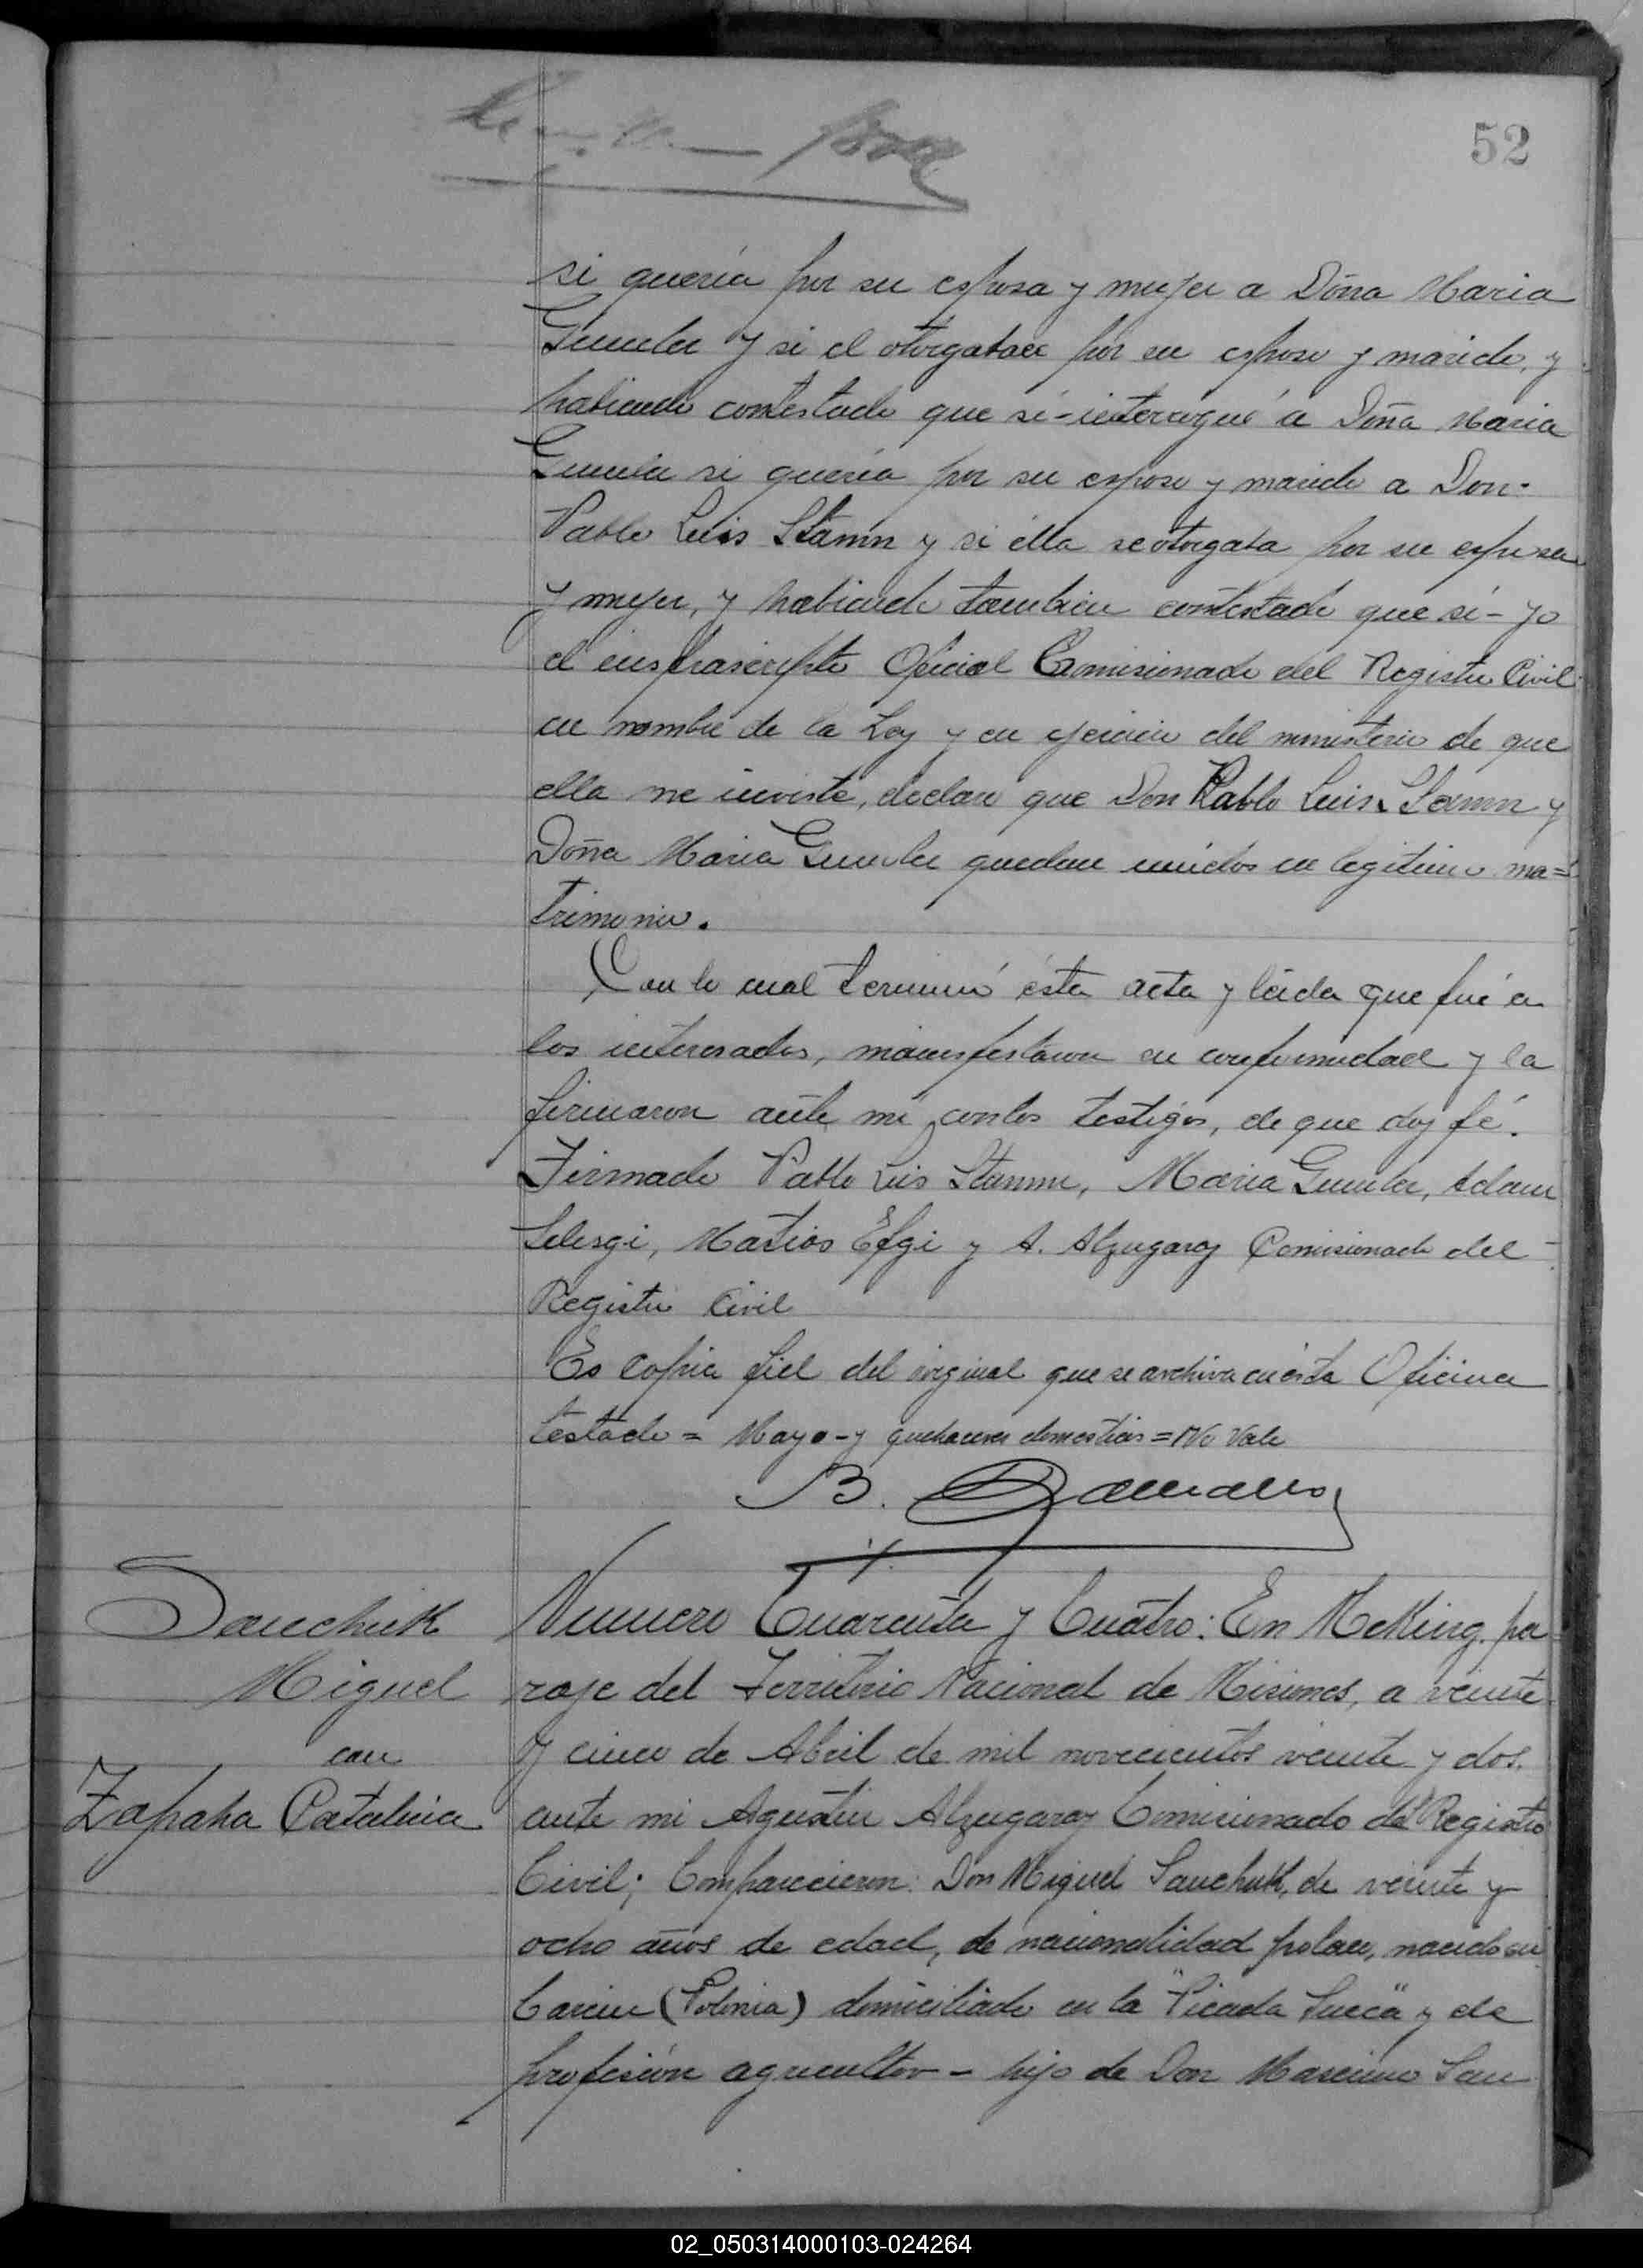 52
si quería por su esposa y mujer a Doña Maria
Gunula y si el otorgabase por su esposo y marido, y
habiendo contestado que sí - interrogué a Doña Maria
Gunula si quería por su esposo y marido a Don
Pablo Luis Stamn y si élla se otorgaba por su esposa
y mujer, y habiendo tambien contestado que sí - yo
el infrascripto Oficial Comisionado del Registro Civil
en nombre de la Ley y en ejercicio del ministerio de que
ella me inviste, declaro que Don Pablo Luis Stamn y
Doña Maria quedan unidos en legitimo ma=
trimonio.
Con lo cual terminó ésta acta y leida que fué a
los interesados, manifestaron su conformidad y la
firmaron ante mi con los testigos, de que doy fé.
Firmado Pablo Luis Stamm, Maria Adam
Matios y A. Alzugaray Comisionado del
Registro Civil
Es copia fiel del original que se archiva en ésta Oficina
testado = Mayo - y quehaceres domesticos = No Vale
B.
Sauchuk
Miguel
con
Zapaha Catalina
Numero Cuarenta y Cuatro: En McKing. pa
raje del Territorio Nacional de Misiones, a veinte
y cinco de Abril de mil novecientos veinte y dos.
ante mi Agustin Alzugaray Comisionado del Registro
Civil; Comparecieron: Don Miguel Sauchuk, de veinte y
ocho años de edad, de nacionalidad polaco, nacido en
(Polonia) domiciliado en la "Picada Sueca" y de
profesión agricultor - hijo de Don Sau
02_050314000103-024264